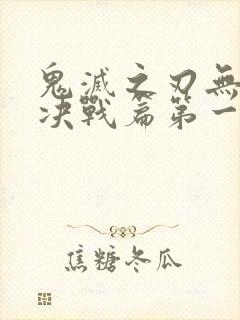 鬼滅之刃無
决戰篇第一
焦糖冬瓜